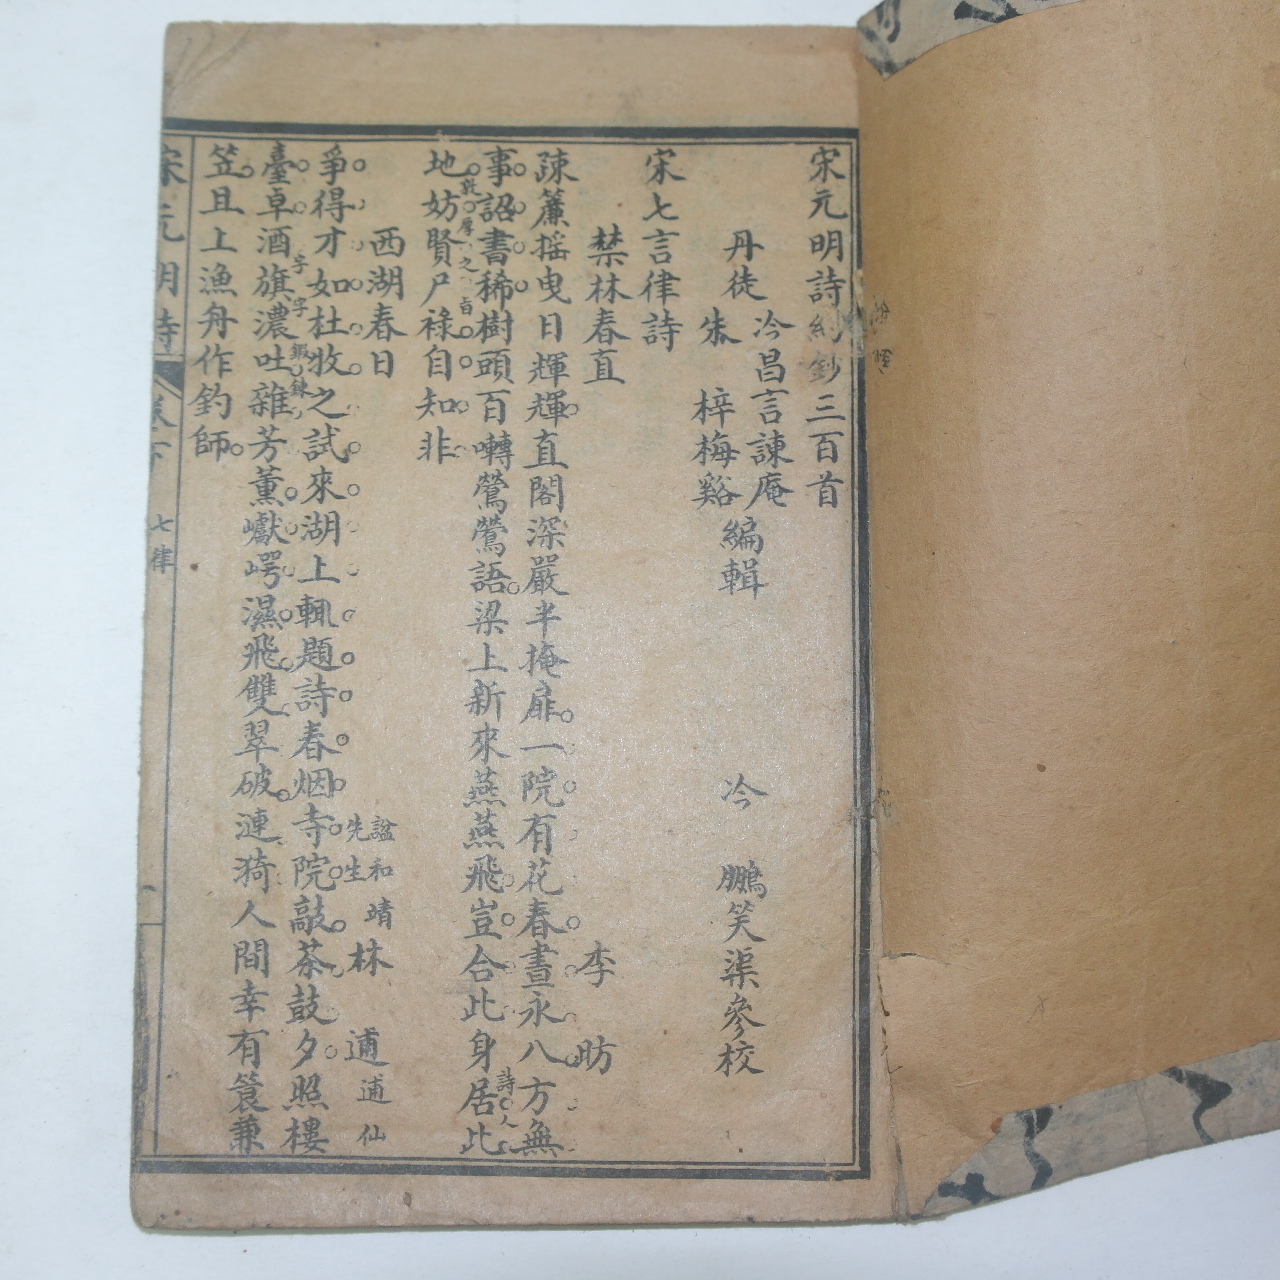 宋元明詩約鈔三百首
丹徒
冷昌言諫庵
朱梓梅谿
編輯
冷鵬笑渠參校
宋七言律詩
禁林春直 李昉
疎簾摇曳日輝輝直閣深嚴半掩扉一院有花春晝永八方無
事詔書稀樹頭百囀鶯鶯語梁上新來燕燕飛豈合此身居此
詩人
地妨賢尸祿自知非
敦厚之旨
西湖春日 林逋
逋仙
諡和靖
先生
爭得才如杜牧之試來湖上輒題詩春烟寺院敲茶鼓夕照樓
臺卓酒旗濃吐雜芳薰巘崿濕飛雙翠破漣漪人間幸有簑兼
字字鍛鍊
笠且上漁舟作釣師
宋元明詩
七律
一